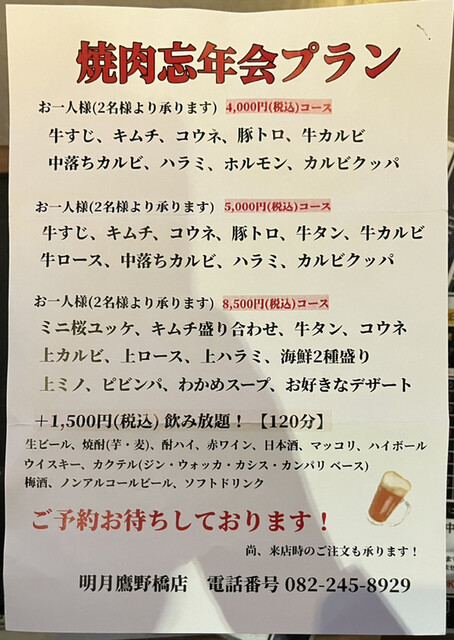 焼肉忘年会プラン
お一人様(2名様より承ります) 4,000円(税込)コース
牛すじ、キムチ、コウネ、豚トロ、牛カルビ
中落ちカルビ、ハラミ、ホルモン、カルビクッパ
お一人様(2名様より承ります) 5,000円(税込)コース
牛すじ、キムチ、コウネ、豚トロ、牛タン、牛カルビ
牛ロース、中落ちカルビ、ハラミ、カルビクッパ
お一人様(2名様より承ります) 8,500円(税込)コース
ミニ桜ユッケ、キムチ盛り合わせ、牛タン、コウネ
上カルビ、上ロース、上ハラミ、海鮮2種盛り
上ミノ、ピビンパ、わかめスープ、お好きなデザート
＋1,500円(税込) 飲み放題！【120分】
生ビール、焼酎(芋・麦)、酎ハイ、赤ワイン、日本酒、マッコリ、ハイボール
ウイスキー、カクテル(ジン・ウォッカ・カシス・カンパリ ベース)
梅酒、ノンアルコールビール、ソフトドリンク
ご予約お待ちしております！
尚、来店時のご注文も承ります！
明月鷹野橋店 電話番号 082-245-8929